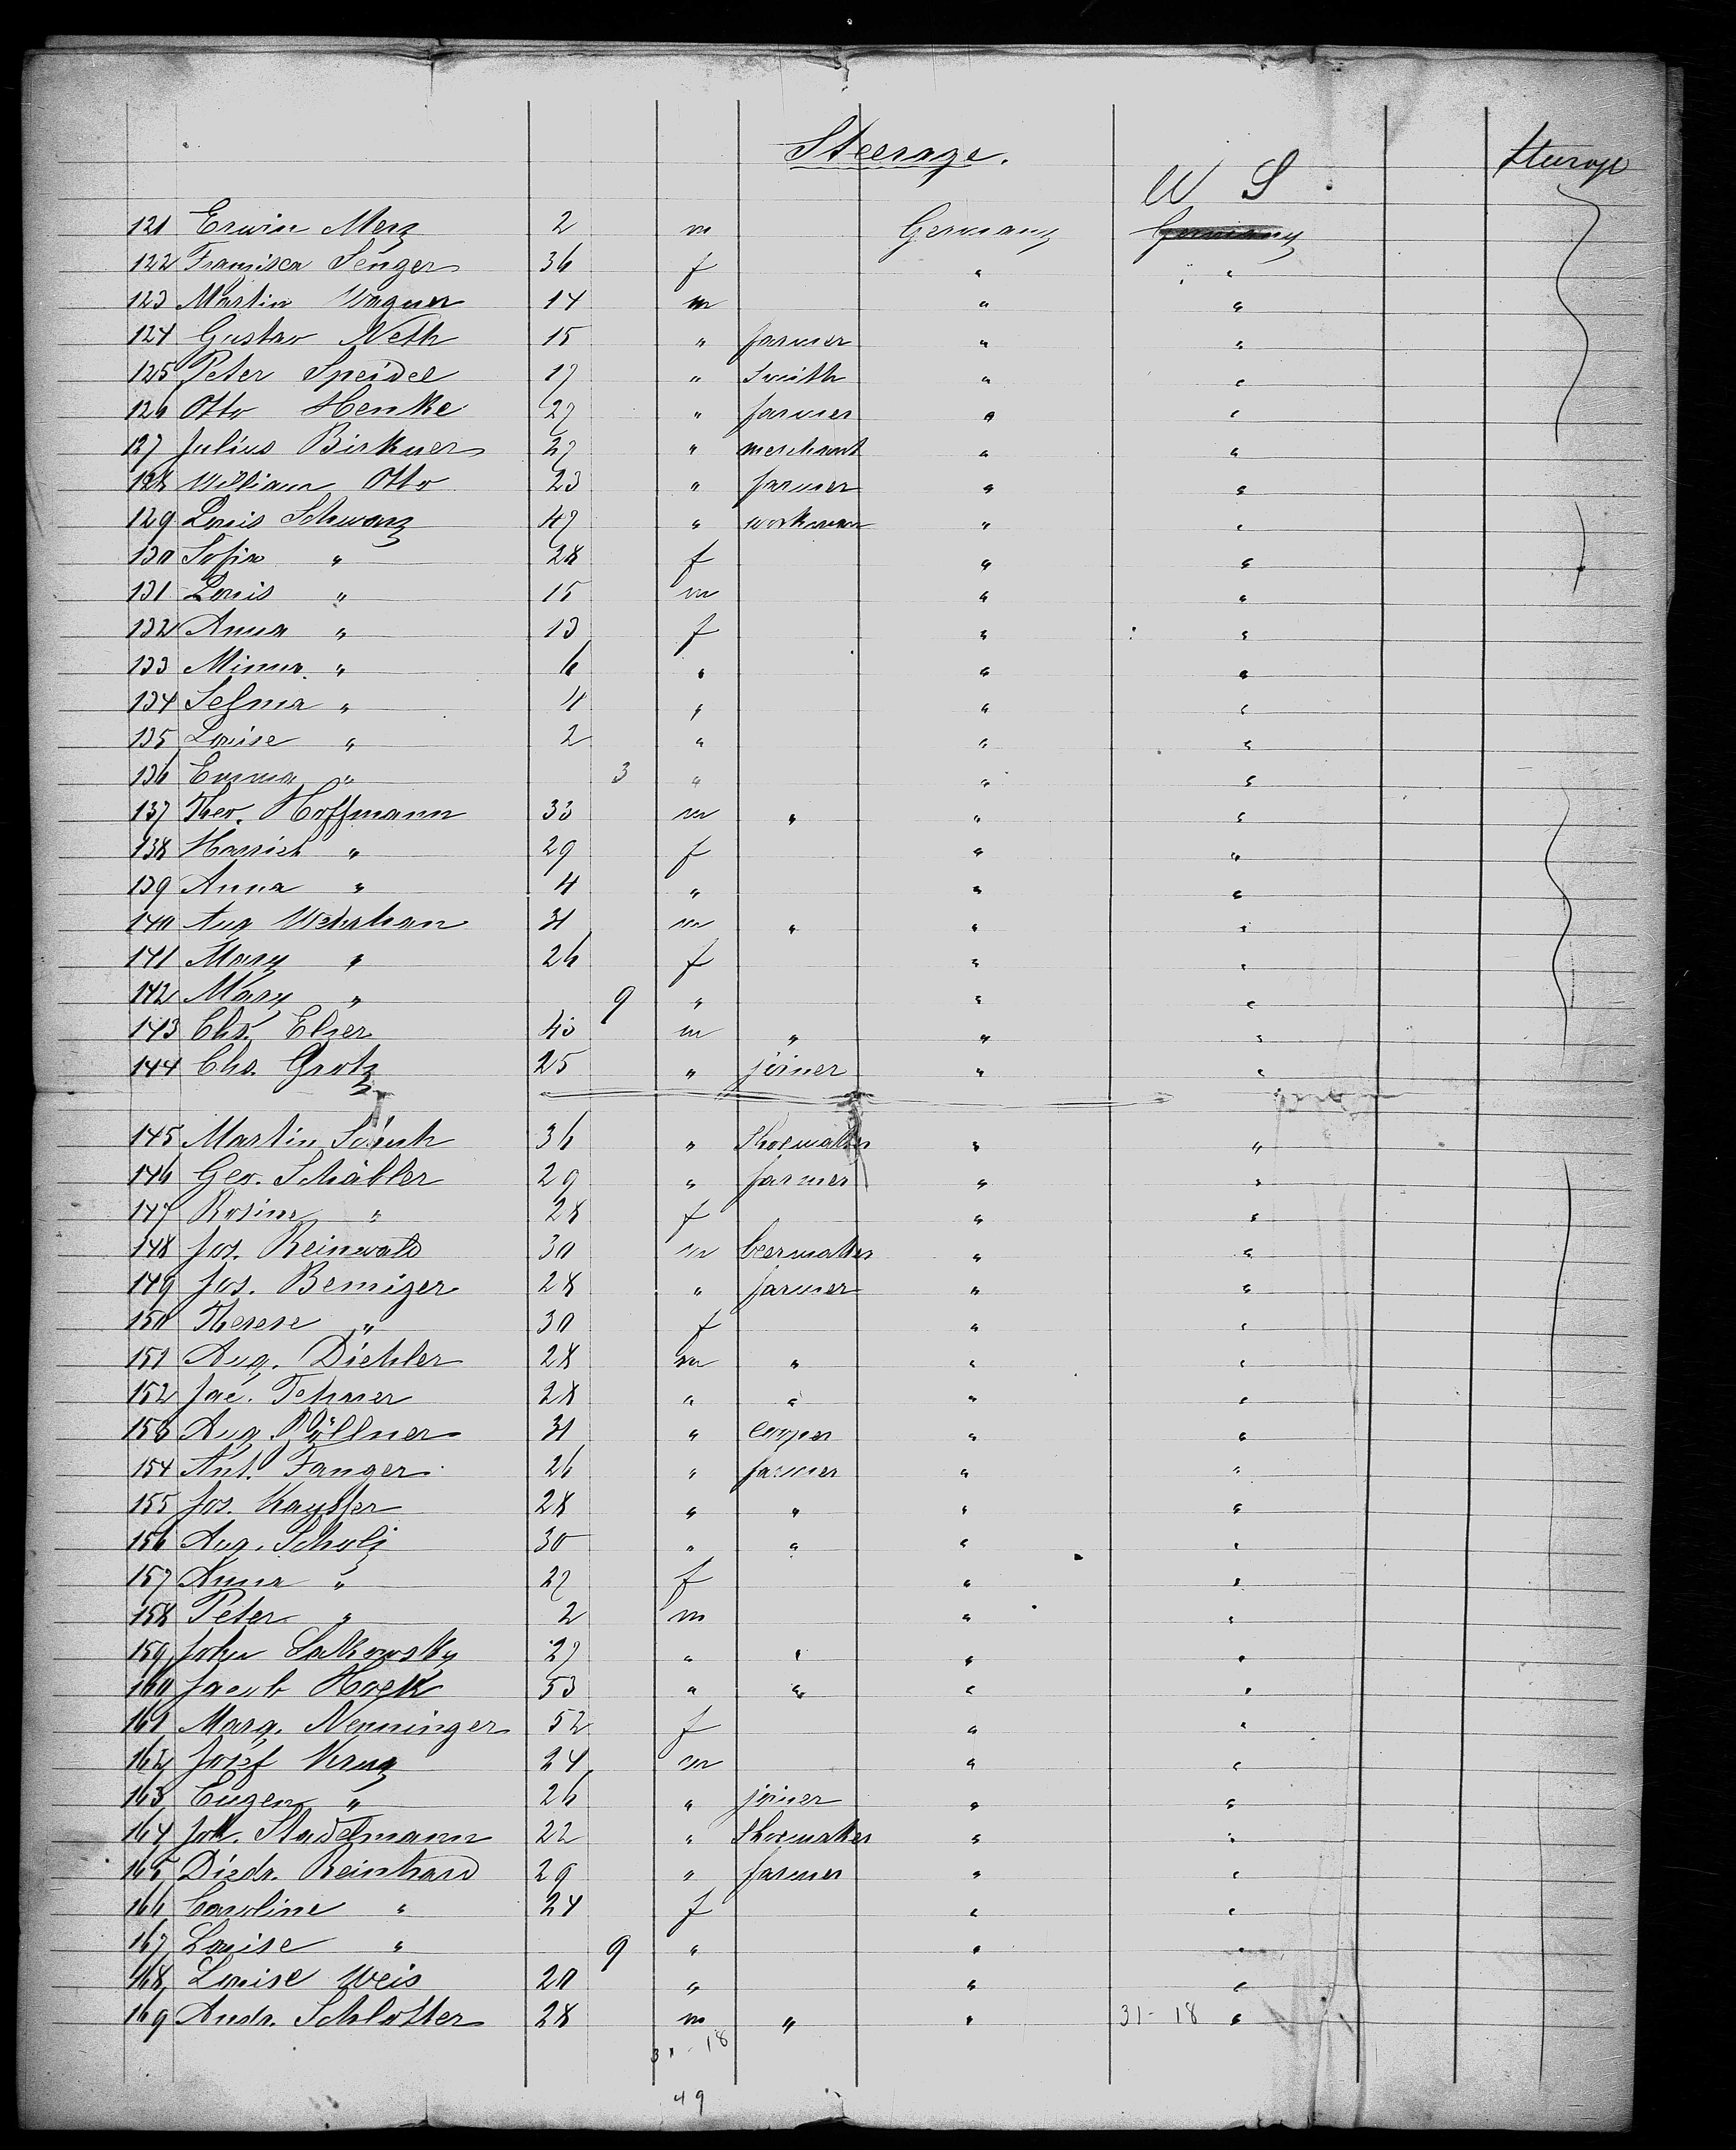 Steerage.
Steerage
U S
121 Erwin Merz 2 m Germany Germany
122 Franziska Senger 36 f " "
123 Martin Wagner 14 m " "
124 Gustav Neth 15 " farmer " "
125 Peter Speidel 17 " Smith " "
126 Otto Henke 27 " farmer " "
127 Julius Birkner 27 " merchant " "
128 William Otto 23 " farmer " "
129 Louis Schwarz 47 " workman " "
130 Sofia " 28 f " "
131 Louis " 15 m " "
132 Anna " 13 f " "
133 Minna " 6 " " "
134 Selma " 4 " " "
135 Louise " 2 " " "
136 Emma " 3 " " "
137 Theo. Hoffmann 33 m " " "
138 " 29 f " "
139 Anna " 4 " " "
140 Aug Wehrhan 31 m " " "
141 Mary " 26 f " "
142 Mary " 9 " " "
143 Chs. Elser 40 m " " "
144 Chs. Grotz 25 " joiner " "
145 Martin 36 " Shoemaker " "
146 Geo. Schäbler 29 " farmer " "
147 Rosina " 28 f " "
148 Jos. Reinwald 30 m beermaker " "
149 Jos. Bemizer 28 " farmer " "
150 Therese " 30 f " "
151 Aug. Diehler 28 m " " "
152 Jac. 28 " " " "
153 Aug. 31 " cooper " "
154 Ant. Fanger 26 " farmer " "
155 Jos. Kayster 28 " " " "
156 Aug. Scholz 30 " " " "
157 Anna " 27 f " "
158 Peter " 2 m " "
159 John Sakowsky 27 " " " "
160 Jacob Hock 53 " " " "
161 Marg. Nenninger 52 f " "
162 Josef Kranz 24 m " "
163 Eugen " 26 " joiner " "
164 Joh. Stadelmann 22 " Shoemaker " "
165 Diedr. Reinhard 29 " farmer " "
166 Caroline " 24 f " "
167 Louise " 9 " " "
168 Louise Weis 20 " " "
169 Andr. Schlotter 28 m " " 31-18 "
31-18
49